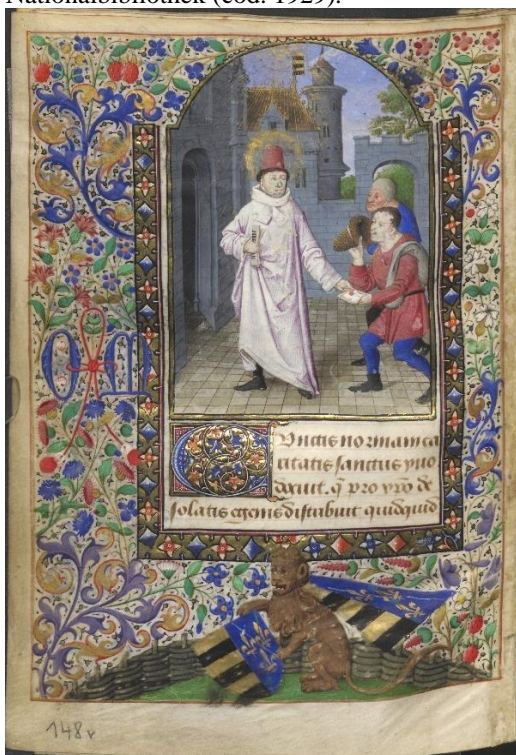 Nationalbibliothek (cod. 1929).
Cunctis normam ca
ritatis sanctus yuo
q̄ pro xp̄o de
solatis egenis distribuit quidquid
148v